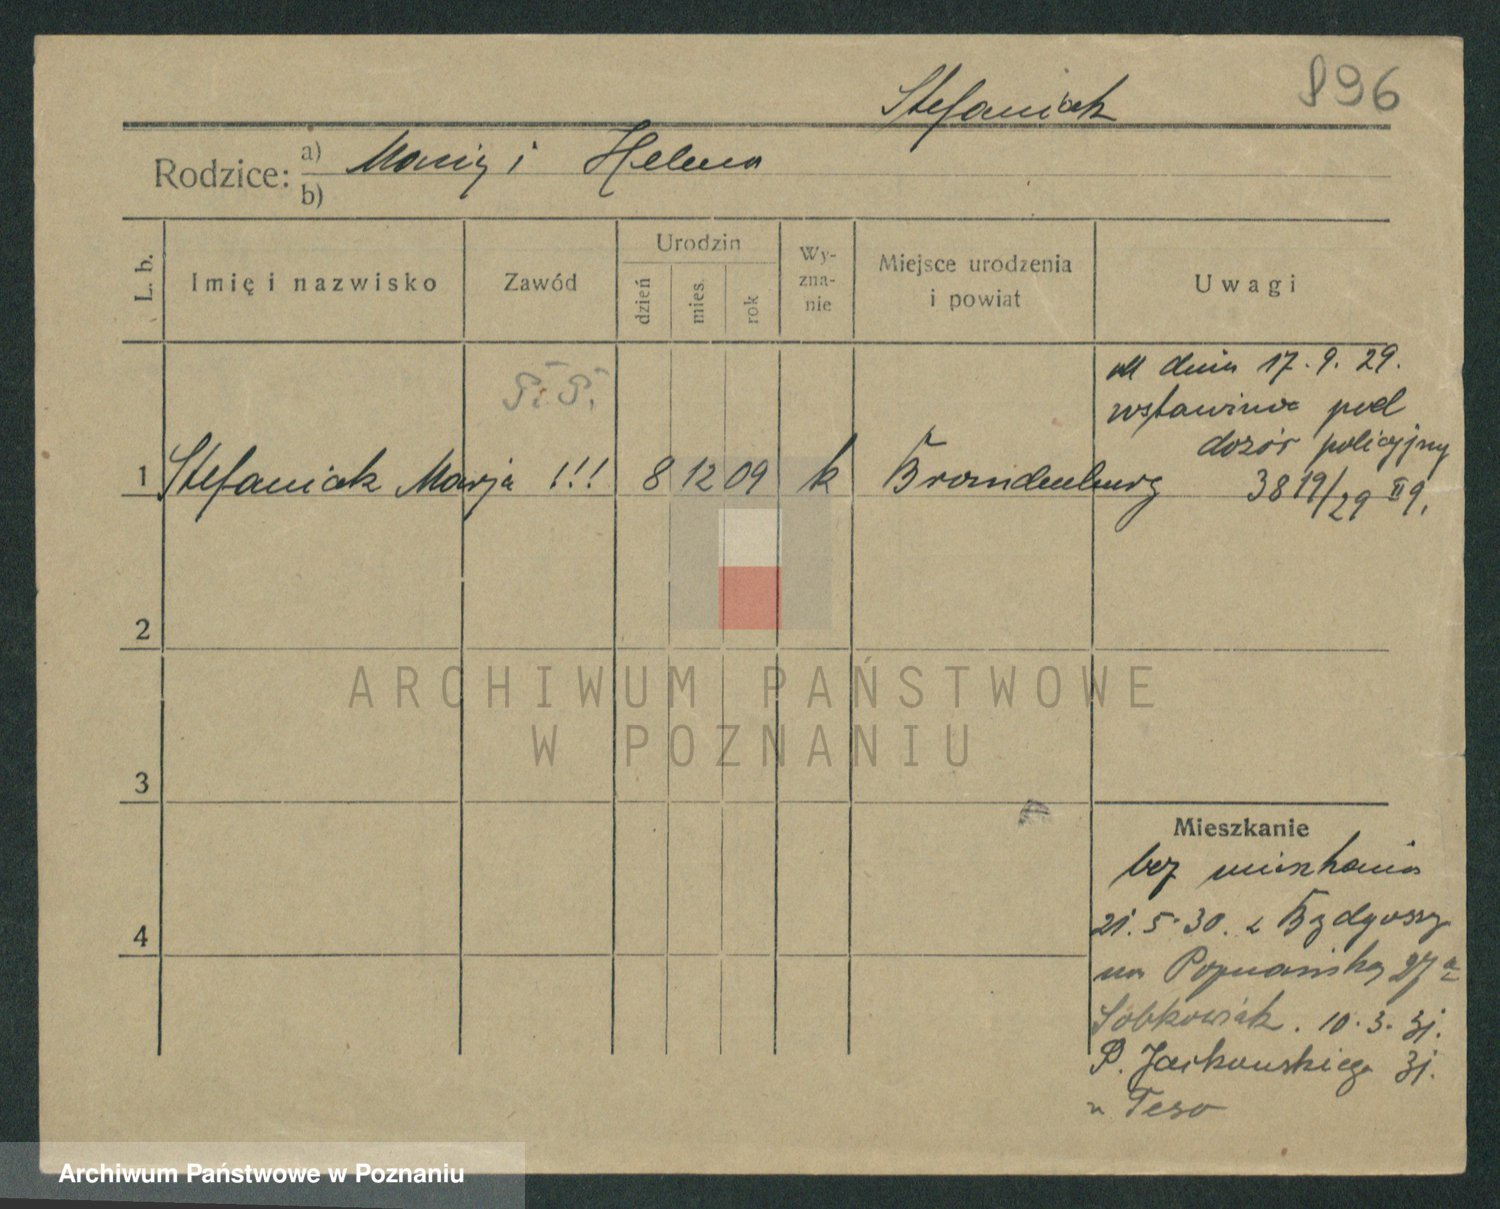 896
Stefaniak
Rodzice: a) i Helena
b)
L. b.
Imię i nazwisko
Zawód
Urodzin
dzień
mies.
rok
Wy-
zna-
nie
Miejsce urodzenia
i powiat
Uwagi
dnia 17. 9. 29.
pod
dozór policyjny
3819/29 II 9.
1 Stefaniak Marja !!! 8 12 09 k Brandenburg
2
3
4
Mieszkanie
bez mieszkania
21. 5. 30. z Bydgoszczy
na Poznańską 27a
Sobkowiak. 10. 3. 31.
P. Jackowskiego 31.
u Teso
ARCHIWUM PAŃSTWOWE
W POZNANIU
Archiwum Państwowe w Poznaniu